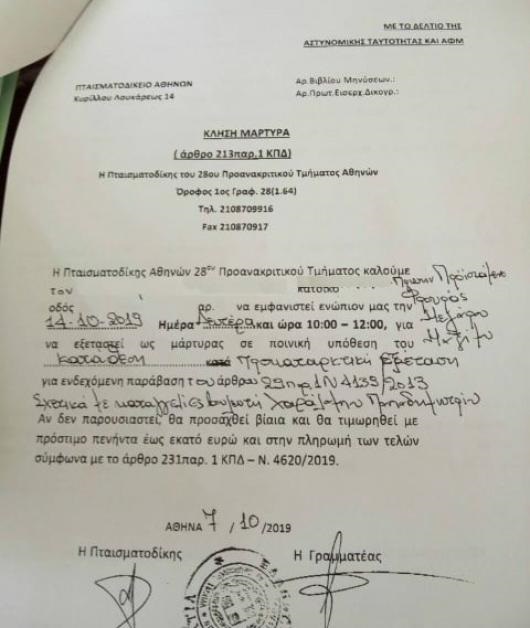 ΜΕ ΤΟ ΔΕΛΤΙΟ ΤΗΣ
ΑΣΤΥΝΟΜΙΚΗΣ ΤΑΥΤΟΤΗΤΑΣ ΚΑΙ ΑΦΜ
ΠΤΑΙΣΜΑΤΟΔΙΚΕΙΟ ΑΘΗΝΩΝ
Κυρίλλου Λουκάρεως 14
Αρ.Βιβλίου Μηνύσεων.:
Αρ.Πρωτ.Εισερχ.Δικογρ.:
ΚΛΗΣΗ ΜΑΡΤΥΡΑ
( άρθρο 213παρ,1 ΚΠΔ)
Η Πταισματοδίκης του 28ου Προανακριτικού Τμήματος Αθηνών
Όροφος 1ος Γραφ. 28(1.64)
Τηλ. 2108709916
Fax 210870917
Η Πταισματοδίκης Αθηνών 28ου Προανακριτικού Τμήματος καλούμε
τον κάτοικο Πρώην Προϊστάμενο
οδός αρ. να εμφανιστεί ενώπιον μας την Φρουράς
14-10-2019 Ημέρα Δευτέρα και ώρα 10:00 – 12:00, για Μεγάρου
να εξετασθεί ως μάρτυρας σε ποινική υπόθεση του Μαξίμου
κατάθεση κατά Προκαταρκτική Εξέταση
για ενδεχόμενη παράβαση του άρθρου 29παρ 1 Ν 4139/2013
Σχετικά με καταγγελίες βουλευτή Χαράλαμπου Παπαδημητρίου
Αν δεν παρουσιαστεί, θα προσαχθεί βίαια και θα τιμωρηθεί με
πρόστιμο πενήντα έως εκατό ευρώ και στην πληρωμή των τελών
σύμφωνα με το άρθρο 231παρ. 1 ΚΠΔ – Ν. 4620/2019.
ΑΘΗΝΑ 7 / 10 /2019
Η Πταισματοδίκης Η Γραμματέας